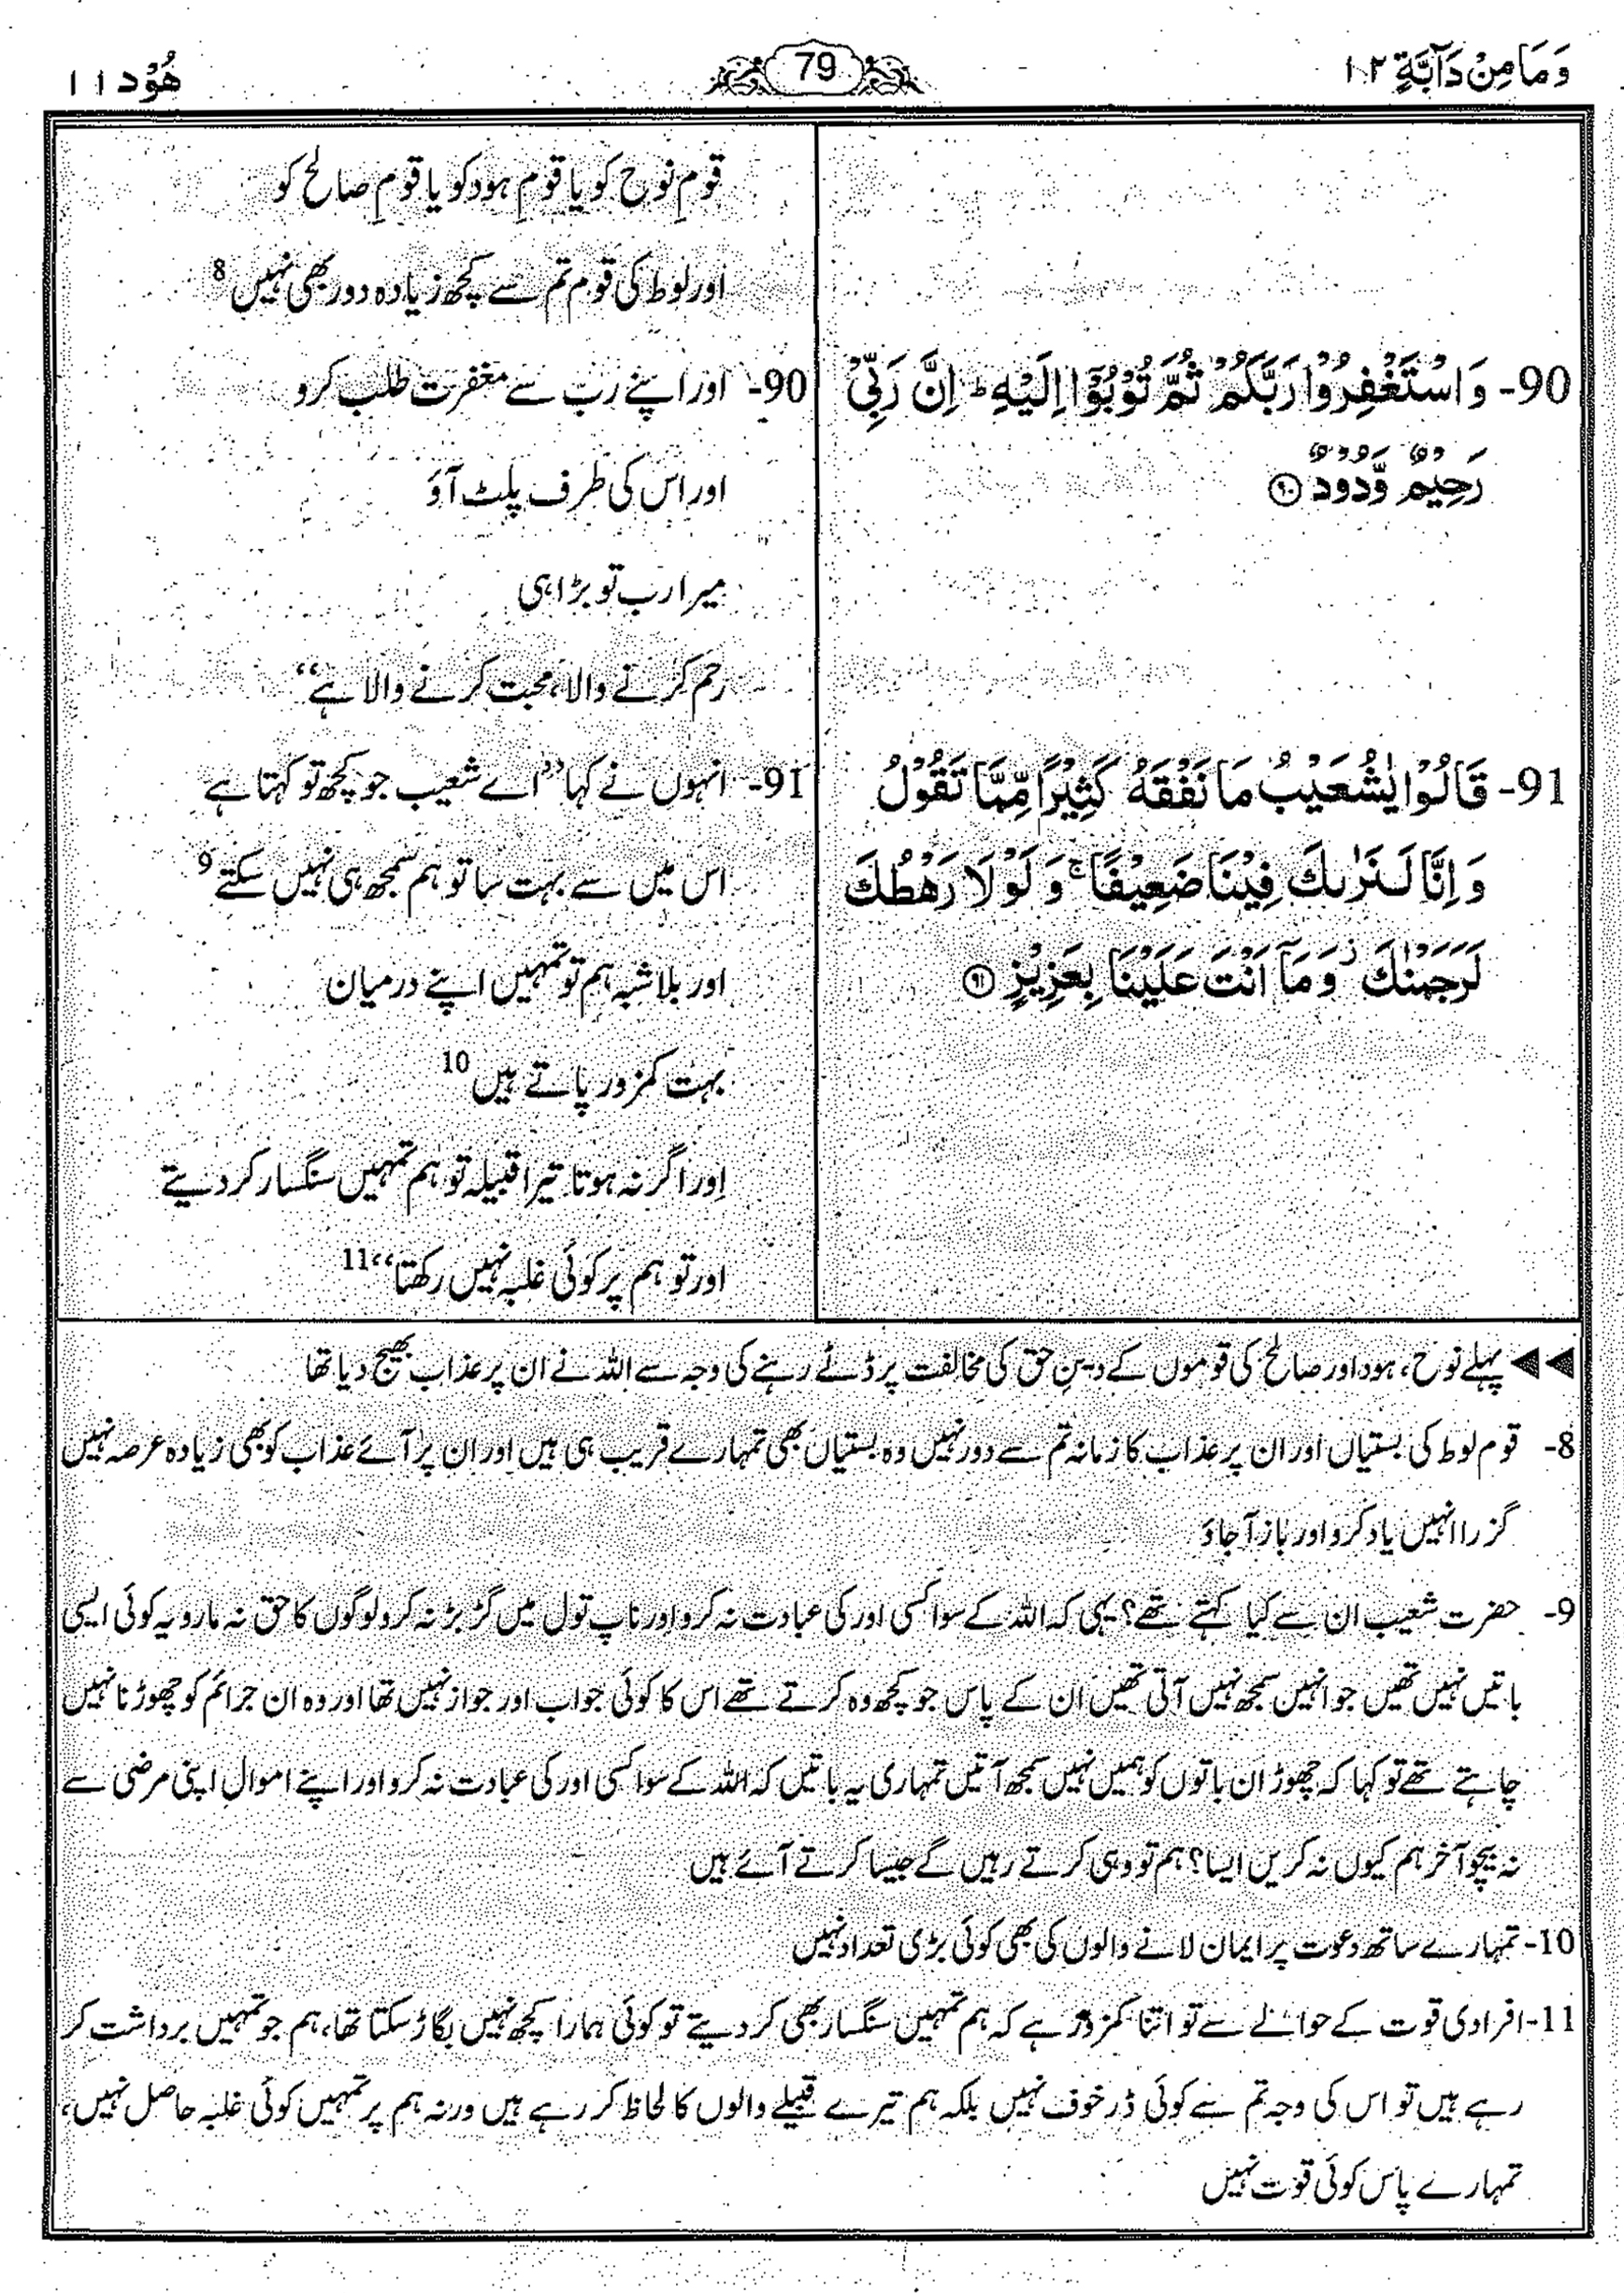 وَمَا مِنْ دَآبَّةٍ ۱۲
79
هُوْد ۱۱
قومِ نوح کو یا قومِ ہود کو یا قومِ صالح کو
اور لوط کی قوم تم سے کچھ زیادہ دور بھی نہیں 8
90- وَاسْتَغْفِرُوْا رَبَّكُمْ ثُمَّ تُوْبُوْٓا اِلَيْهِ ؕ اِنَّ رَبِّيْ
رَحِيْمٌ وَّدُوْدٌ ﴿۹۰﴾
90- اور اپنے رب سے مغفرت طلب کرو
اور اس کی طرف پلٹ آؤ
میرا رب تو بڑا ہی
رحم کرنے والا، محبت کرنے والا ہے“
91- قَالُوْا يٰشُعَيْبُ مَا نَفْقَهُ كَثِيْرًا مِّمَّا تَقُوْلُ
وَاِنَّا لَنَرٰىكَ فِيْنَا ضَعِيْفًا ۚ وَلَوْلَا رَهْطُكَ
لَرَجَمْنٰكَ ؗ وَمَآ اَنْتَ عَلَيْنَا بِعَزِيْزٍ ﴿۹۱﴾
91- انہوں نے کہا ”اے شعیب جو کچھ تو کہتا ہے
اس میں سے بہت سا تو ہم سمجھ ہی نہیں سکتے 9
اور بلاشبہ ہم تو تمہیں اپنے درمیان
بہت کمزور پاتے ہیں 10
اور اگر نہ ہوتا تیرا قبیلہ تو ہم تمہیں سنگسار کر دیتے
اور تو ہم پر کوئی غلبہ نہیں رکھتا“ 11
◀◀ پہلے نوح، ہود اور صالح کی قوموں کے دینِ حق کی مخالفت پر ڈٹے رہنے کی وجہ سے اللہ نے ان پر عذاب بھیج دیا تھا
8- قوم لوط کی بستیاں اور ان پر عذاب کا زمانہ تم سے دور نہیں وہ بستیاں بھی تمہارے قریب ہی ہیں اور ان پر آئے عذاب کو بھی زیادہ عرصہ نہیں
گزرا انہیں یاد کرو اور باز آ جاؤ
9- حضرت شعیب ان سے کیا کہتے تھے؟ یہی کہ اللہ کے سوا کسی اور کی عبادت نہ کرو اور ناپ تول میں گڑ بڑ نہ کرو لوگوں کا حق نہ مارو یہ کوئی ایسی
باتیں نہیں تھیں جو انہیں سمجھ نہیں آتی تھیں ان کے پاس جو کچھ وہ کرتے تھے اس کا کوئی جواب اور جواز نہیں تھا اور وہ ان جرائم کو چھوڑنا نہیں
چاہتے تھے تو کہا کہ چھوڑ ان باتوں کو ہمیں نہیں سمجھ آتیں تمہاری یہ باتیں کہ اللہ کے سوا کسی اور کی عبادت نہ کرو اور اپنے اموال اپنی مرضی سے
نہ بیچو آخر ہم کیوں نہ کریں ایسا؟ ہم تو وہی کرتے رہیں گے جیسا کرتے آئے ہیں
10- تمہارے ساتھ دعوت پر ایمان لانے والوں کی بھی کوئی بڑی تعداد نہیں
11- افرادی قوت کے حوالے سے تو اتنا کمزور ہے کہ ہم تمہیں سنگسار بھی کر دیتے تو کوئی ہمارا کچھ نہیں بگاڑ سکتا تھا، ہم جو تمہیں برداشت کر
رہے ہیں تو اس کی وجہ تم سے کوئی ڈر خوف نہیں بلکہ ہم تیرے قبیلے والوں کا لحاظ کر رہے ہیں ورنہ ہم پر تمہیں کوئی غلبہ حاصل نہیں،
تمہارے پاس کوئی قوت نہیں